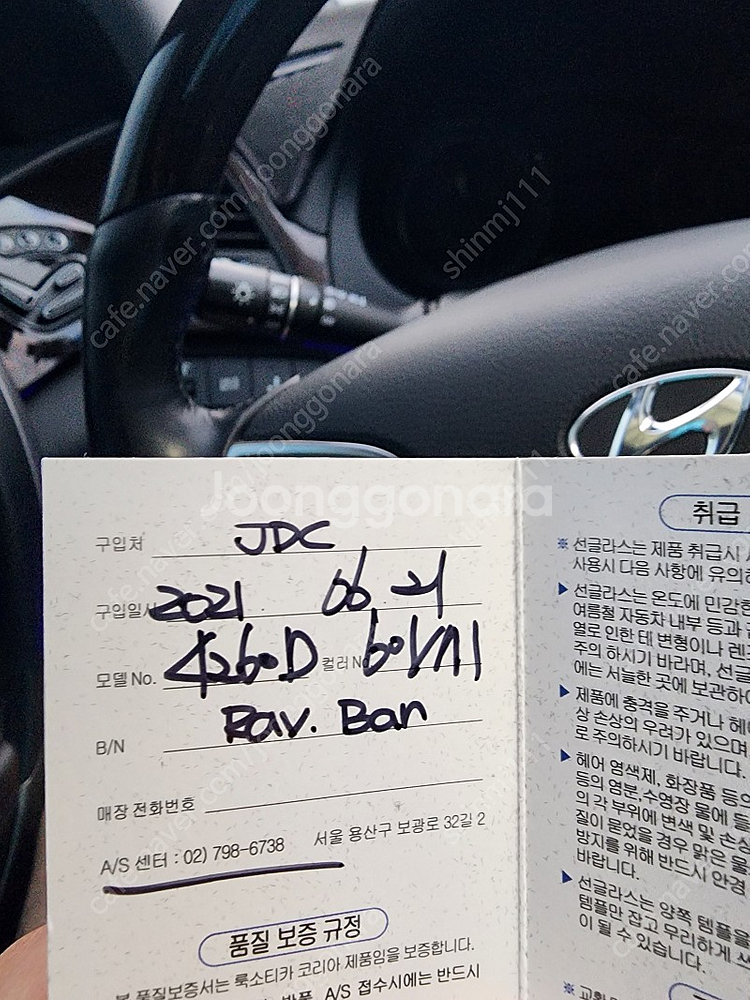 cafe.naver.com/joonggonara
shinmj111
cafe.naver.com/joonggonara
Joonggonara
구입처 JDC
구입일 2021 06 21
모델 No. 4260D 컬러 No 601/71
Ray. Ban
B/N
매장 전화번호
A/S 센터 : 02) 798-6738 서울 용산구 보광로 32길 2
품질 보증 규정
본 품질보증서는 룩소티카 코리아 제품임을 보증합니다.
반품, A/S 접수시에는 반드시
취급
※ 선글라스는 제품 취급시
사용시 다음 사항에 유의하
▶ 선글라스는 온도에 민감
여름철 자동차 내부 등과
열로 인한 테 변형이나 렌
주의 하시기 바라며, 선글
에는 서늘한 곳에 보관하
▶ 제품에 충격을 주거나 헤
상 손상의 우려가 있으며
로 주의하시기 바랍니다.
▶ 헤어 염색제, 화장품 등
등의 염분 수영장 물에
의 각 부위에 변색 및 손상
질이 묻었을 경우 맑은 물
방지를 위해 반드시 안경
바랍니다.
▶ 선글라스는 양쪽 템플을
템플만 잡고 무리하게
이 될 수 있습니다.
※ 교환